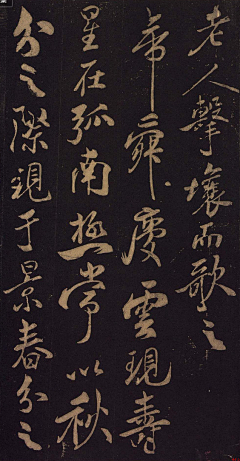 老人擊壤而歌之
帝舜慶雲現壽
星在孤南極常以秋
分之際現于景春分之